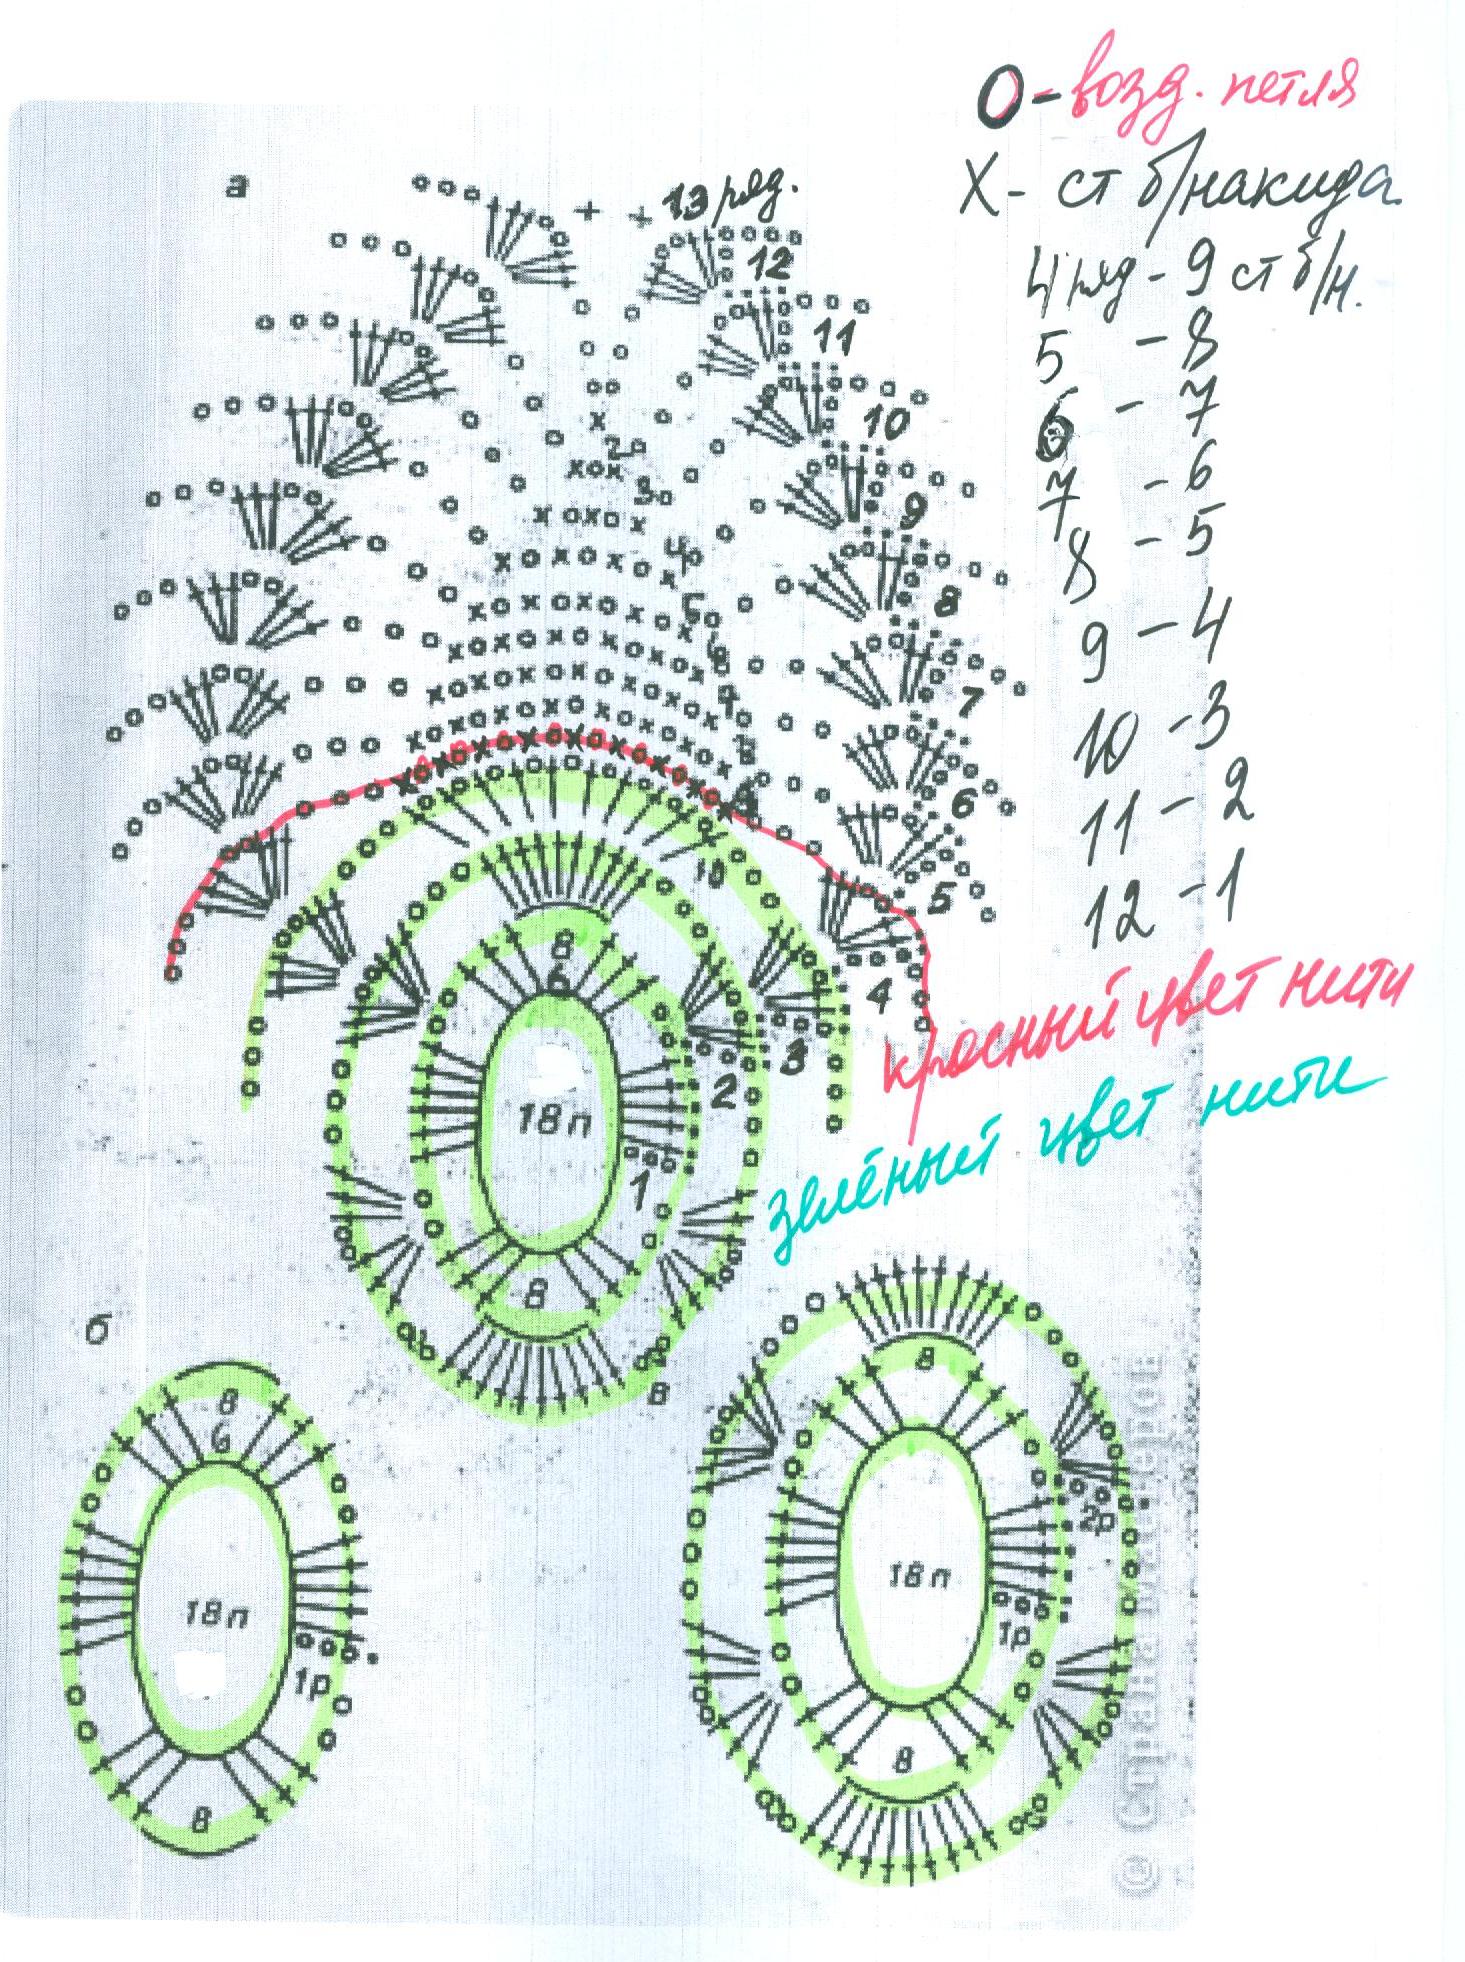 О - возд. петля
Х - ст б/накида.
4 ряд - 9 ст б/н.
5 - 8
6 - 7
7 - 6
8 - 5
9 - 4
10 - 3
11 - 2
12 - 1
красный цвет нити
зелёный цвет нити
а
13 ряд.
12
11
10
9
8
7
6
5
4
3
2
1
10
8
6
18 п
8
8
б
8
6
18 п
1р
8
8
18 п
2р
1р
8
© Страна Мастеров